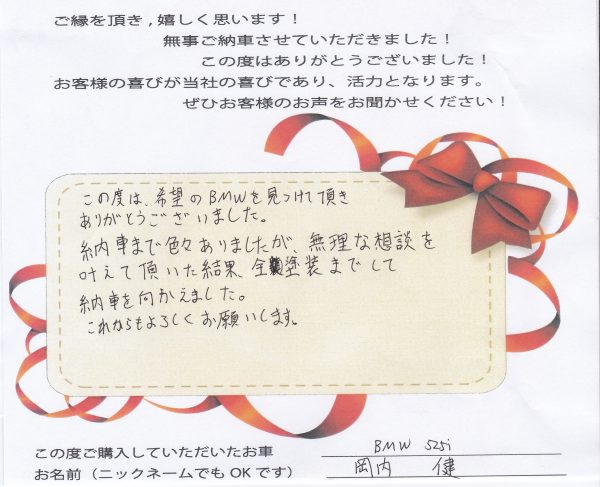 ご縁を頂き,嬉しく思います!
無事ご納車させていただきました!
この度はありがとうございました!
お客様の喜びが当社の喜びであり、活力となります。
ぜひお客様のお声をお聞かせください!
この度は、希望のBMWを見つけて頂き
ありがとうございました。
納車まで色々ありましたが、無理な想談を
叶えて頂いた結果、全塗装までして
納車を向かえました。
これからもよろしくお願いします。
この度ご購入していただいたお車 BMW 525i
お名前(ニックネームでもOKです) 岡内 健